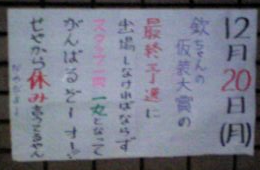 12月20日(月)
欽ちゃんの
仮装大賞の
最終予選に
出場しなければならず
スタッフ一同一丸となって
がんばるぞーオー!
せやから休み